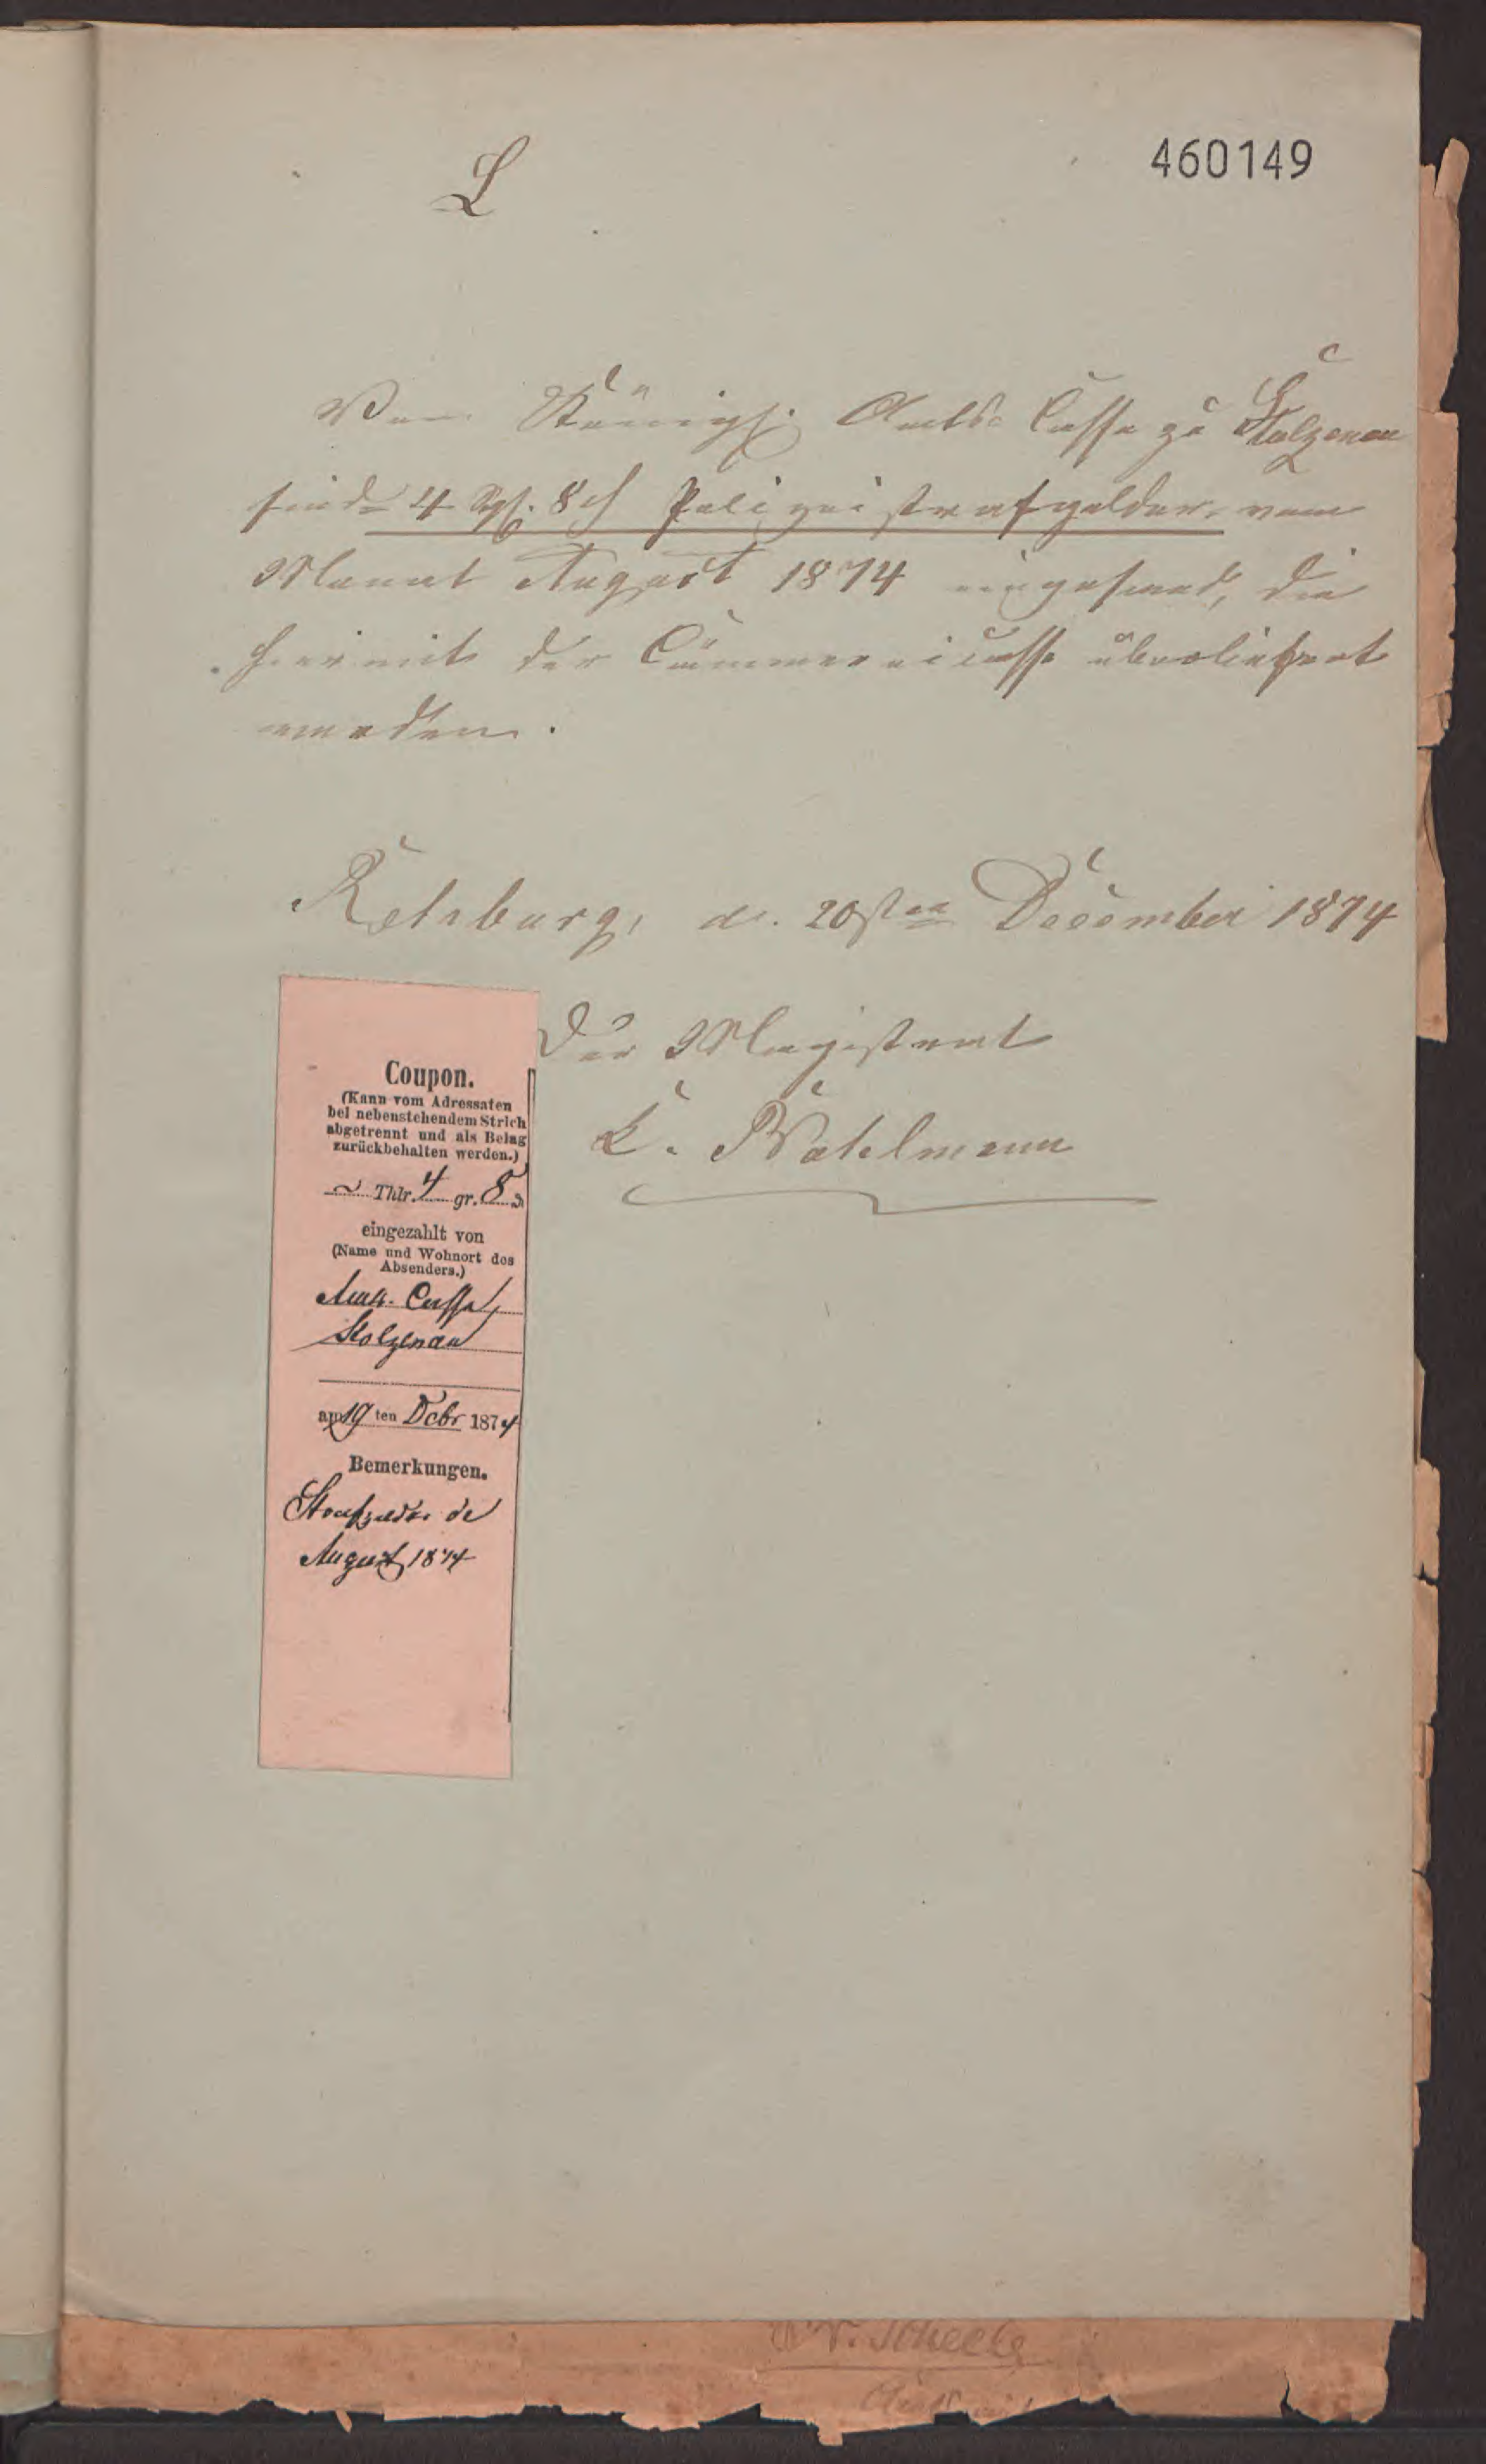 L
460149
Von Königl. Amts-Casse zu Stolzenau
sind 4 Sgl. 8 ₰ Polizeistrafgelder vom
Monat August 1874 eingesand, die
hiermit der Cämmereicasse überliefert
werden.
Rehburg, d. 20sten December 1874
Der Magistrat
Coupon.
(Kann vom Adressaten
bei nebenstehendem Strich
abgetrennt und als Belag
zurückbehalten werden.)
~ Thlr. 4 gr. 8 ₰
eingezahlt von
(Name und Wohnort des
Absenders.)
Amts-Casse
Stolzenau
am 19 ten Dcbr 1874
Bemerkungen.
Strafgelder de
August 1874